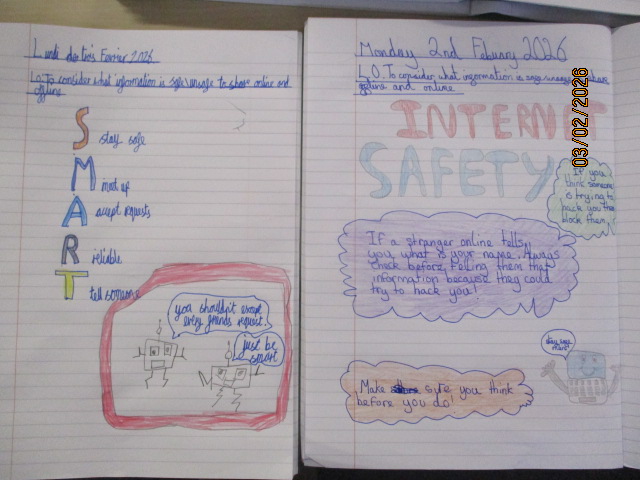 Lundi deux Fevrier 2026
L.O: To consider what information is safe/unsafe to share online and
offline
S stay safe
M meet up
A accept requests
R reliable
T tell someone
you shouldn't except
every friends request.
just be
smart
Monday 2nd Febuary 2026
L.O: To consider what information is safe/unsafe to share
offline and online
INTERNET
SAFETY
If you
think someone
is trying to
hack you then
block them.
If a stranger online tells
you what is your name. Always
check before telling them that
information because they could
try to hack you!
stay safe
Make sure you think
before you do!
03/02/2026